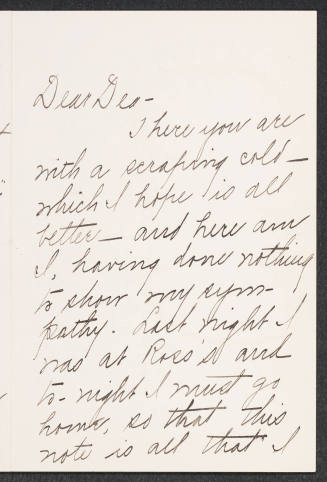 Dear Dea-
There you are
with a scraping cold—
which I hope is all
better— and here am
I, having done nothing
to show my sym-
pathy. Last night I
was at Ross's and
to-night I must go
home, so that this
note is all that I